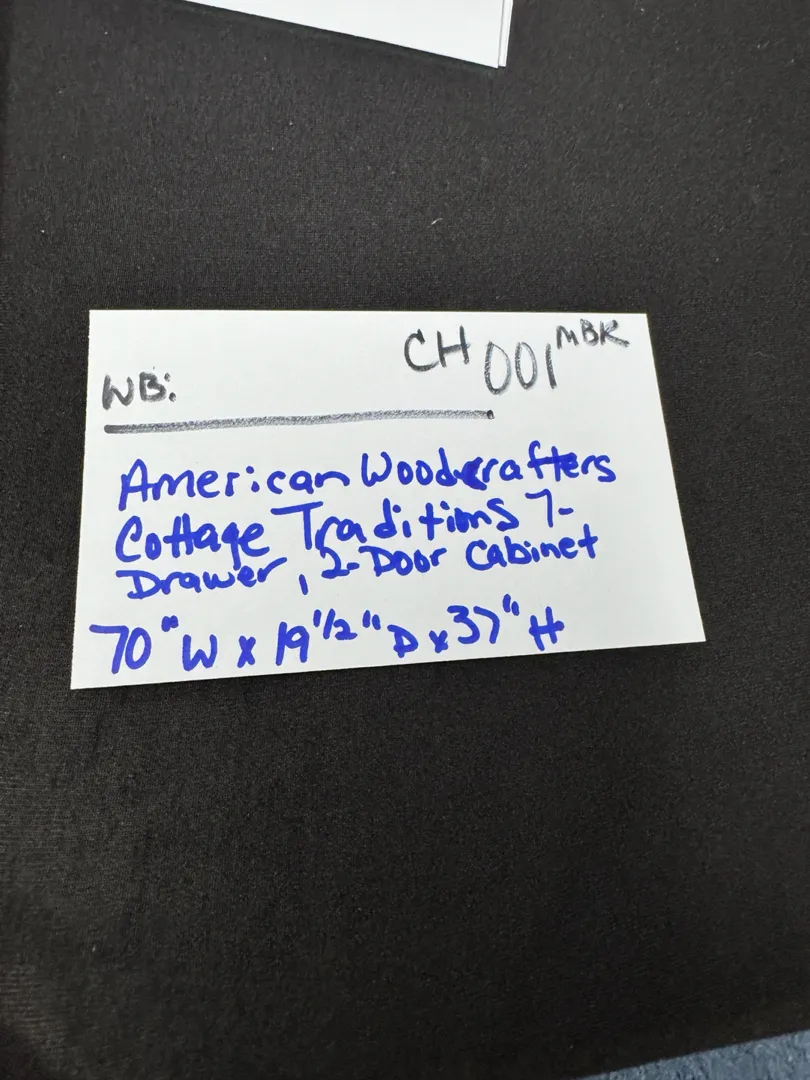 CH 001 MBR
WB:
American Woodcrafters
Cottage Traditions 7-
Drawer, 2-Door Cabinet
70" W x 19 1/2" D x 37" H